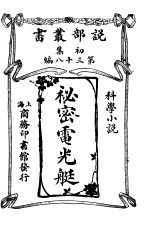 說部叢書
初集
第三十八編
科學小說
祕密電光艇
上海
商務印書館發行